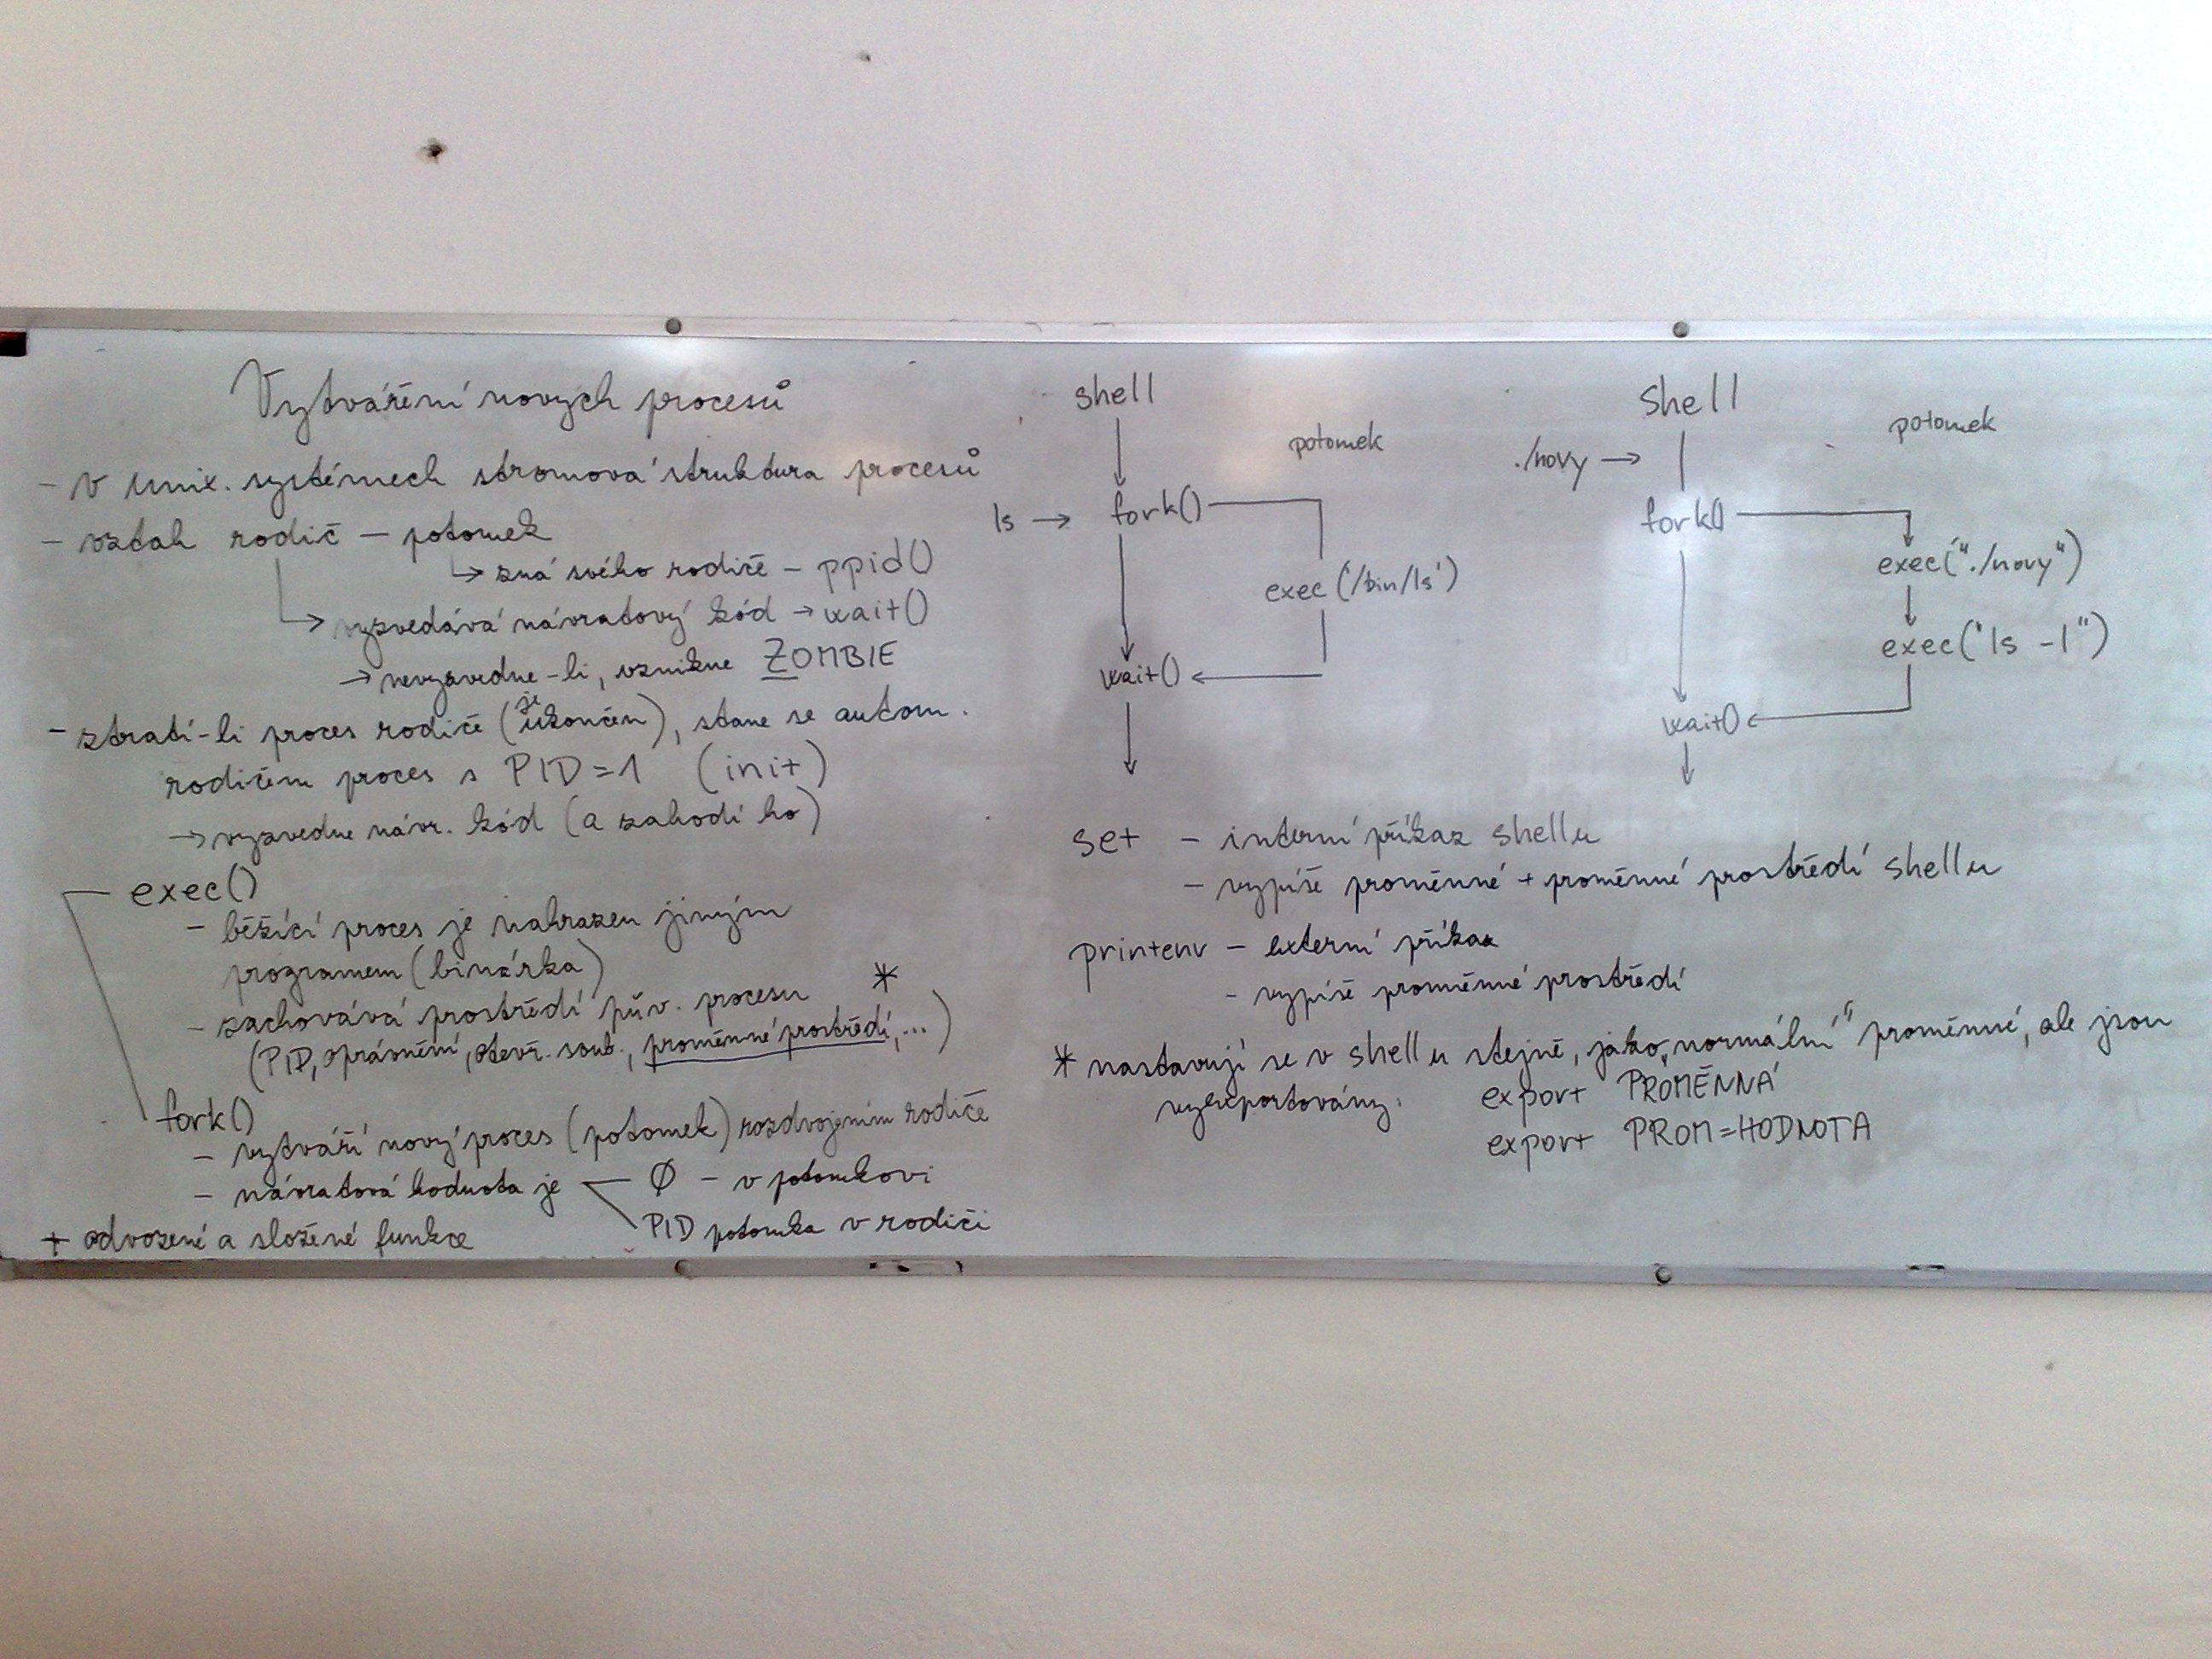 Vytváření nových procesů
- v unix. systémech stromová struktura procesů
- vztah rodič - potomek
↳ zná svého rodiče - ppid()
↳ vyzvedává návratový kód → wait()
→ nevyzvedne-li, vznikne ZOMBIE
- ztratí-li proces rodiče (je ukončen), stane se autom.
rodičem proces s PID=1 (init)
→ vyzvedne návr. kód (a zahodí ho)
exec()
- běžící proces je nahrazen jiným
programem (binárka)
- zachovává prostředí pův. procesu *
(PID, oprávnění, otevř. soub., proměnné prostředí, ...)
fork()
- vytváří nový proces (potomek) rozdvojením rodiče
- návratová hodnota je Ø - v potomkovi
PID potomka v rodiči
+ odvozené a složené funkce
shell
potomek
ls → fork()
exec('/bin/ls')
wait()
shell
potomek
./novy →
fork()
exec("./novy")
exec("ls -l")
wait()
set - interní příkaz shellu
- vypíše proměnné + proměnné prostředí shellu
printenv - externí příkaz
- vypíše proměnné prostředí
* nastavují se v shellu stejně, jako „normální" proměnné, ale jsou
vyexportovány: export PROMĚNNÁ
export PROM=HODNOTA